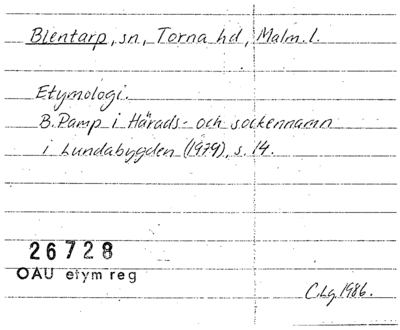 Bjentarp, sn, Torna hd, Malm. l.
Etymologi.
B. Pamp i Härads- och sockennamn
i Lundabygden (1979), s. 14.
26728
OAU etym reg
C. Lg. 1986.